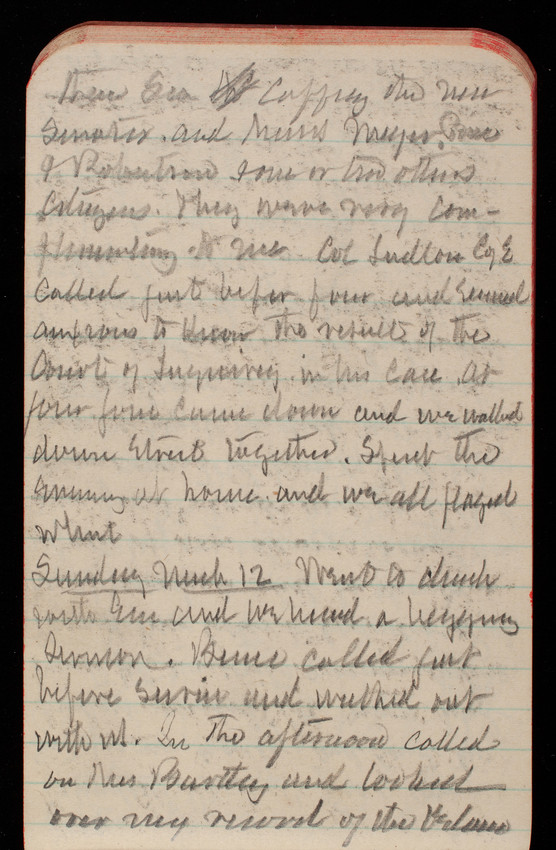 Senator. and Miss Meyer,
& Robertson & one or two others
Citizens. They were very com-
plimentary to me. Col Ludlow C of E
called just before four and seemed
anxious to know the result of the
Court of Inquiry in his case. At
four came down and we walked
down Street together. Spent the
evening at home and we all played
whist
Sunday March 12 Went to church
with Em and we heard a begging
Sermon. called just
before Service and walked out
with us. In the afternoon called
on Mrs Bartley and looked
over my record of the